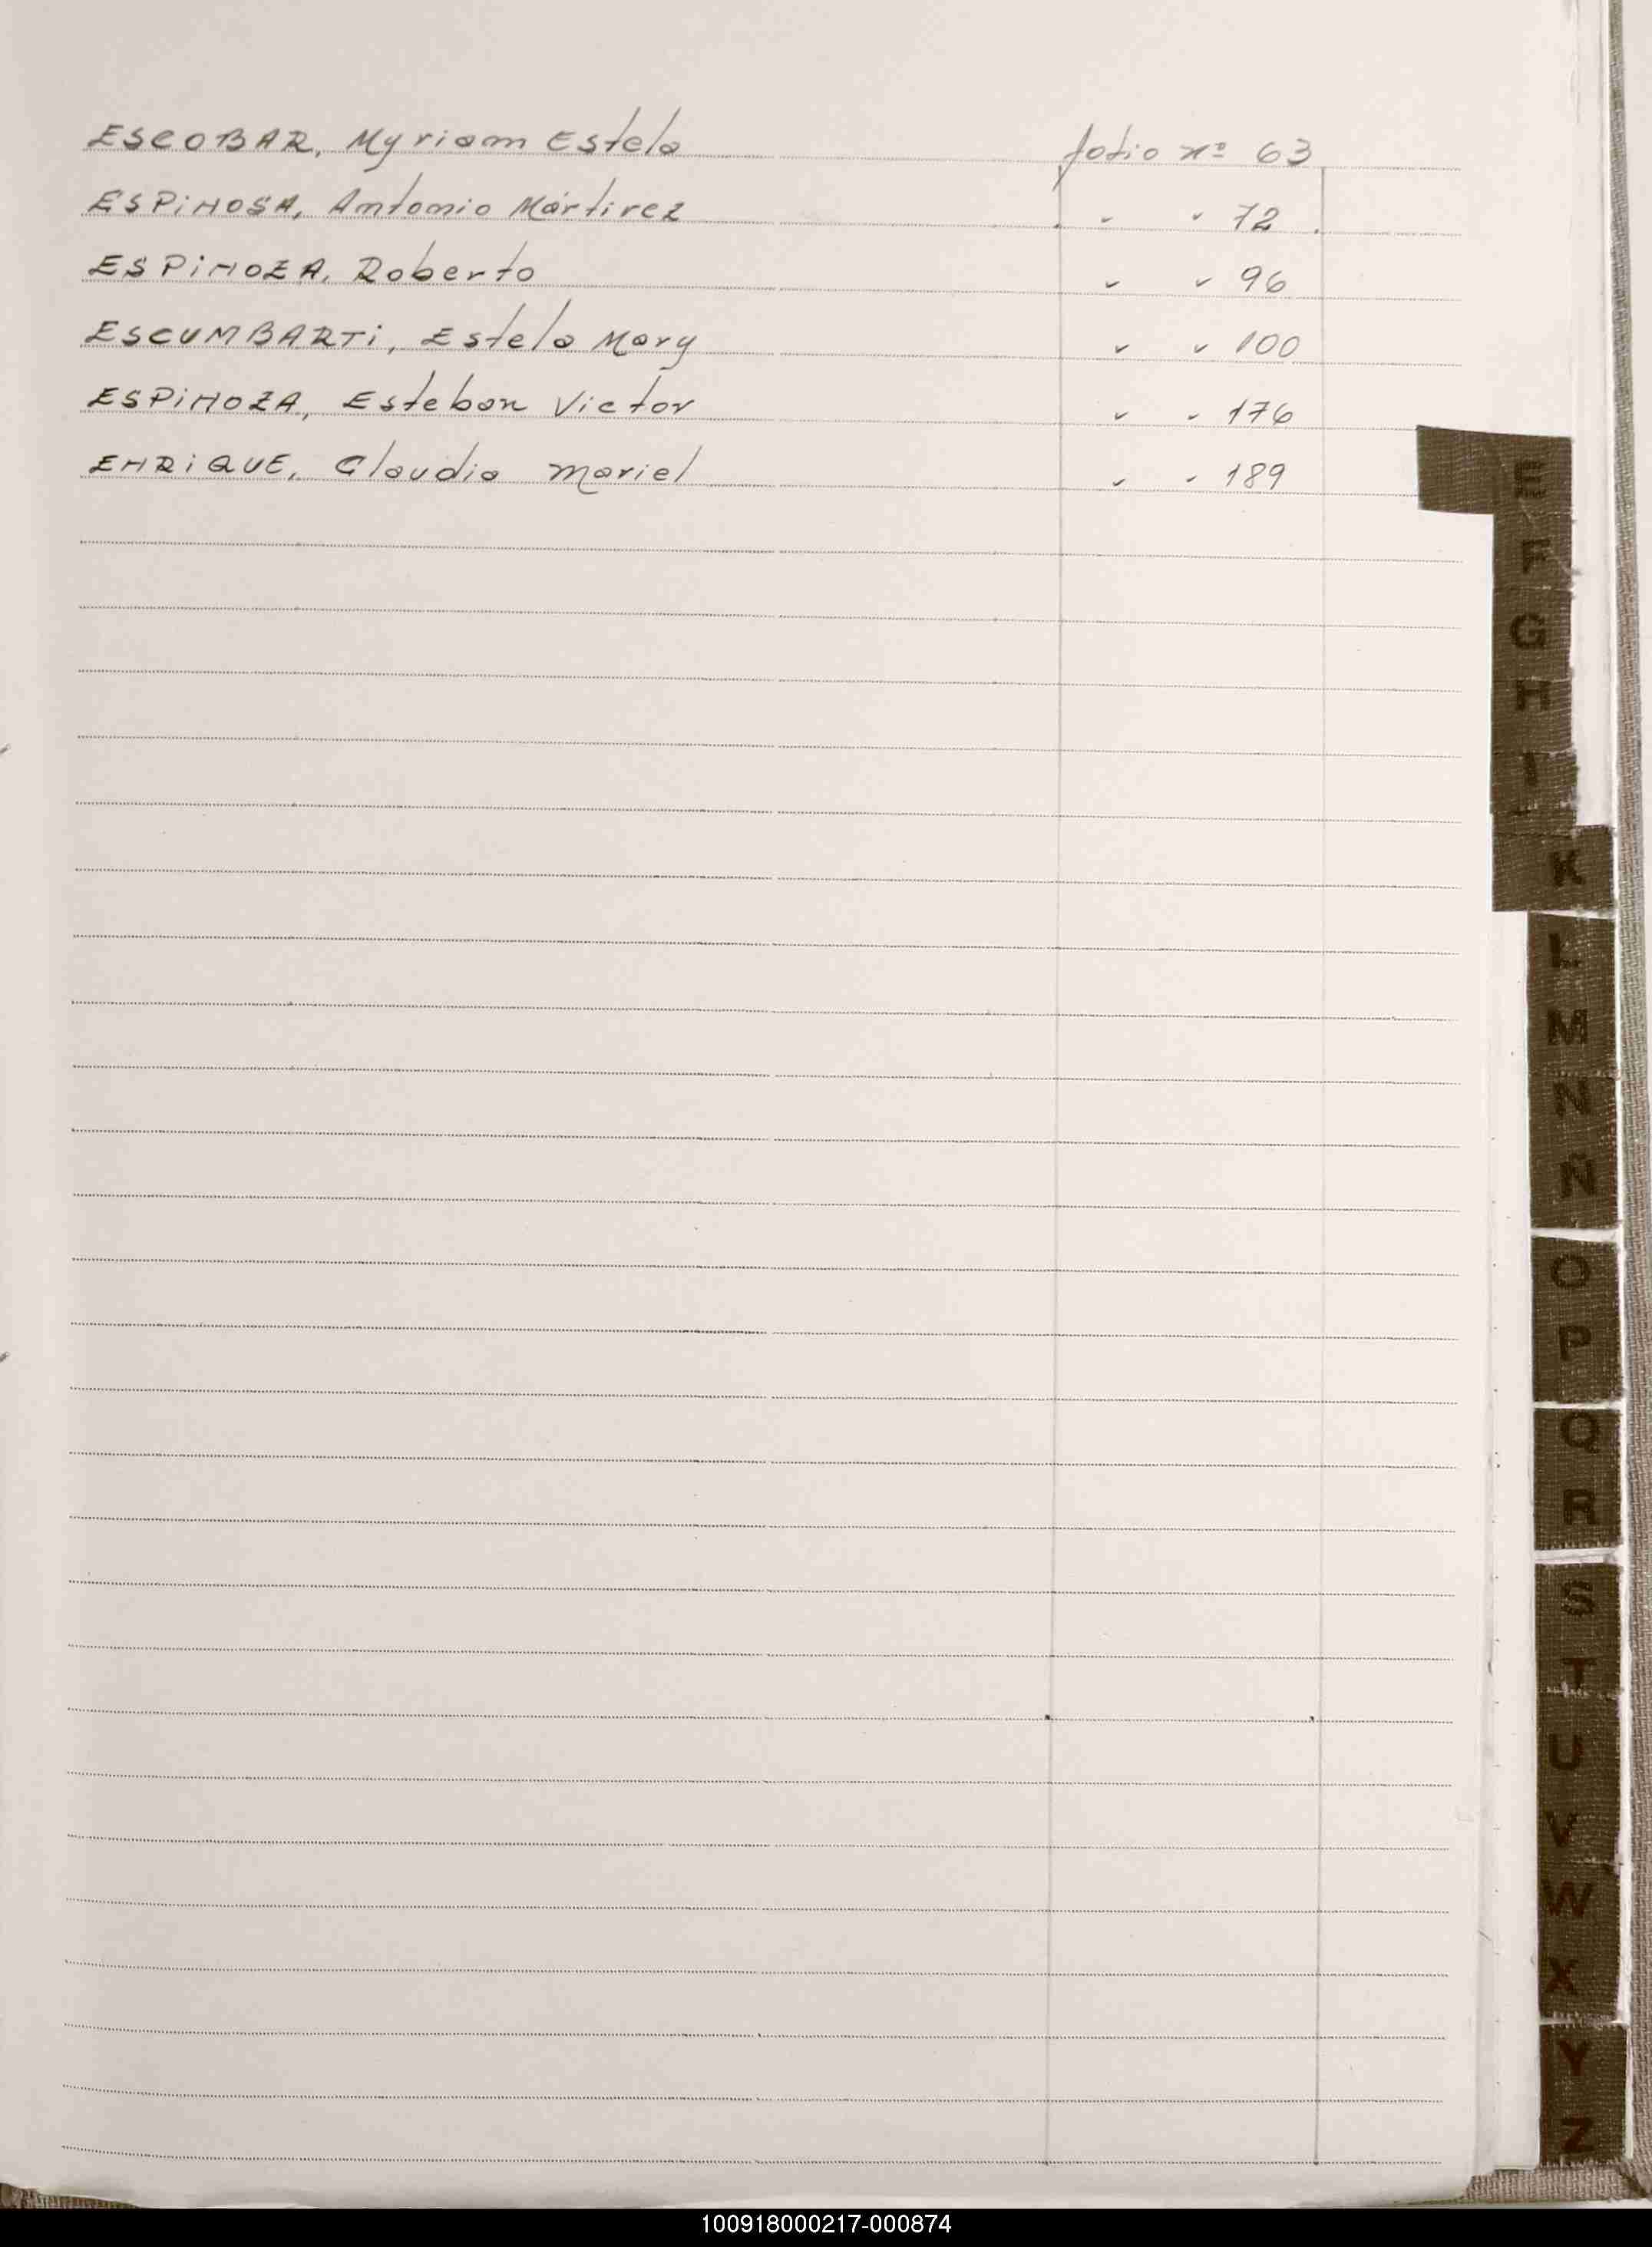 ESCOBAR, Myriam Estela folio nº 63
ESPiNOSA, Antonio Mártirez " " 72
ESPiNOZA, Roberto " " 96
ESCUMBARTi, Estela Mary " " 100
ESPiNOZA, Esteban Victor " " 176
ENRiQUE, Claudia Mariel " " 189
E
F
G
H
I
K
L
M
N
Ñ
O
P
Q
R
S
T
U
V
W
X
Y
Z
100918000217-000874